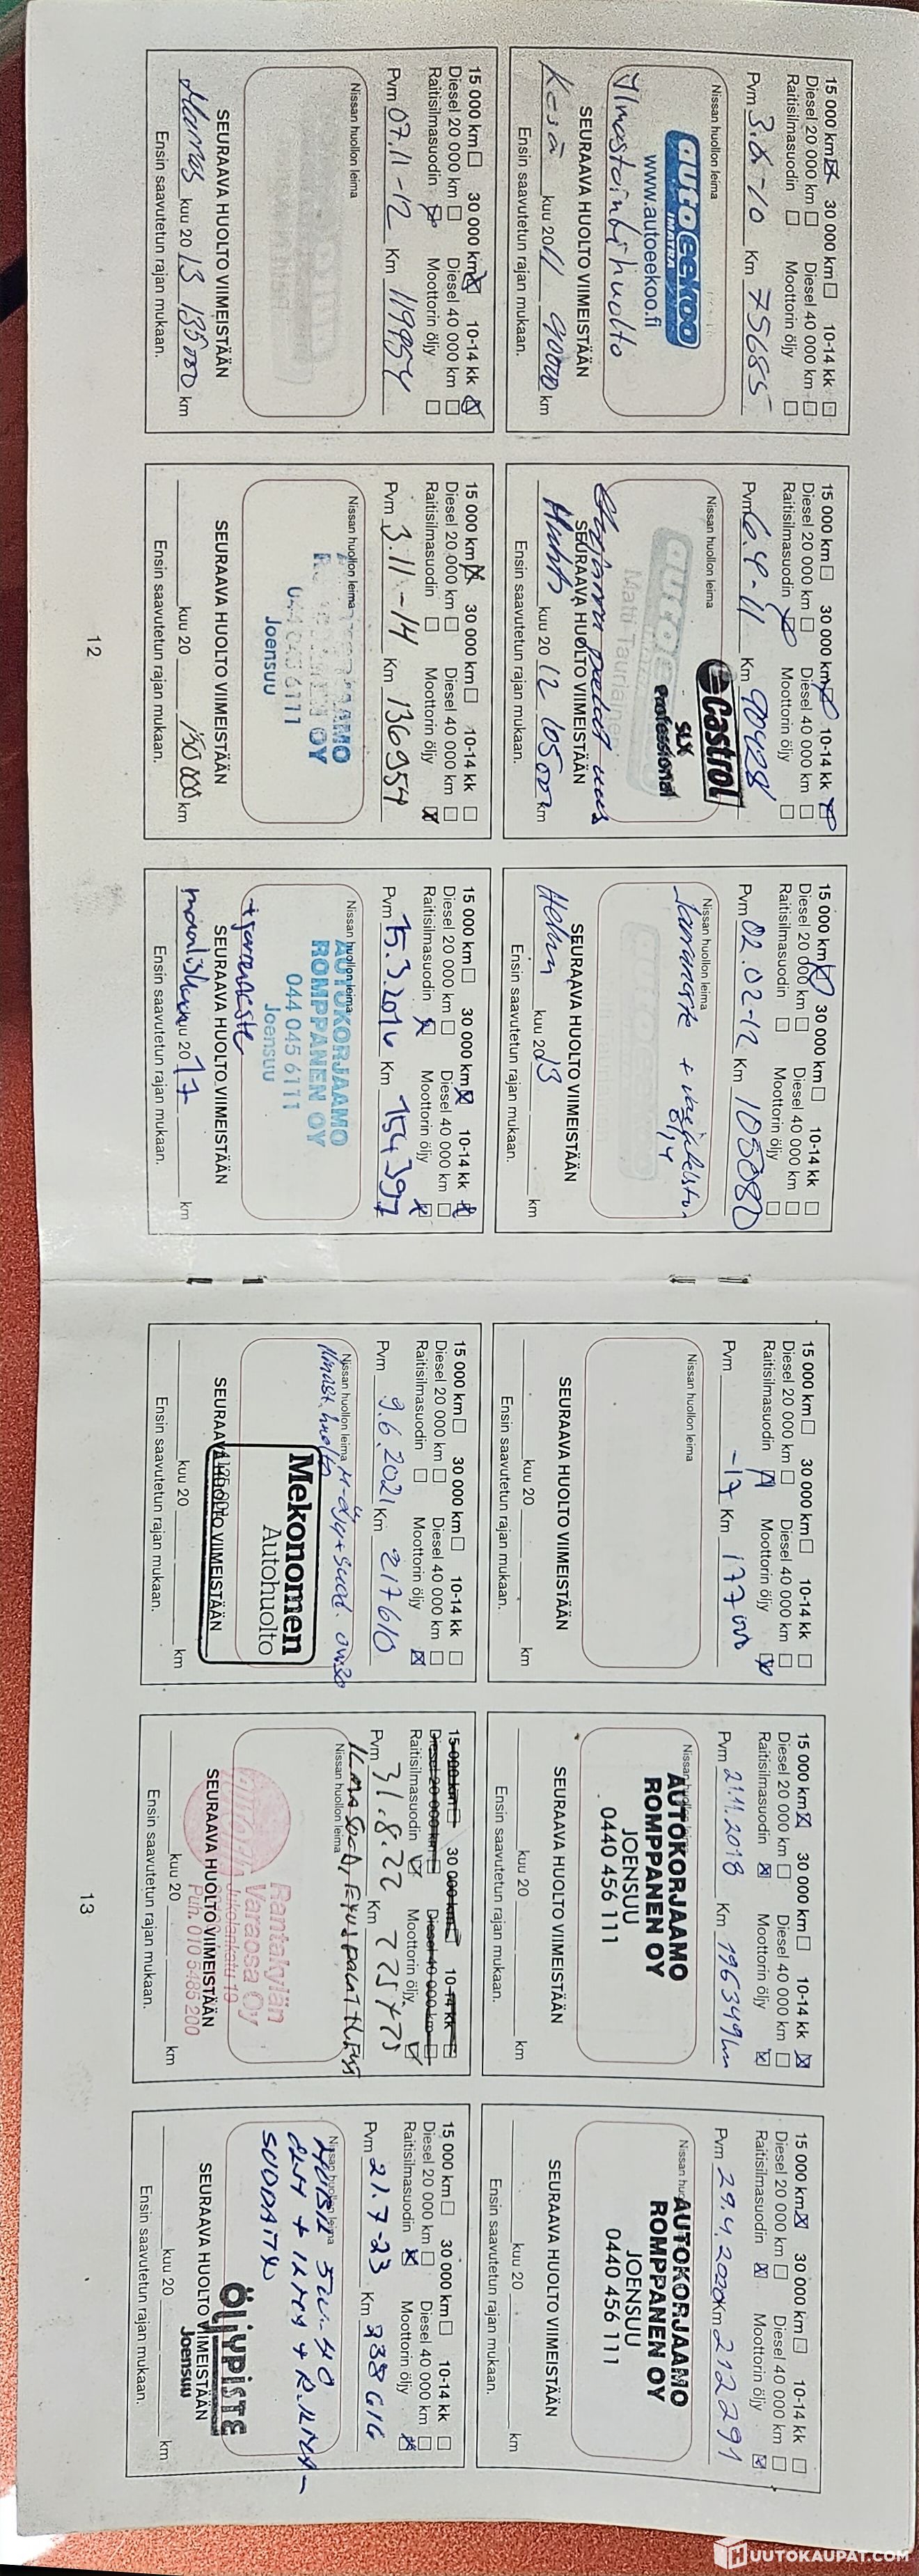 15 000 km ☒ 30 000 km ☐ 10-14 kk ☐
Diesel 20 000 km ☐ Diesel 40 000 km ☐
Raitisilmasuodin ☐ Moottorin öljy ☐
Pvm 3.6-10 Km 75685
Nissan huollon leima
autoeekoo
IMATRA
www.autoeekoo.fi
Ilmastointihuolto
SEURAAVA HUOLTO VIIMEISTÄÄN
Kesä kuu 2011 90000 km
Ensin saavutetun rajan mukaan.
15 000 km ☐ 30 000 km ☒ 10-14 kk ☒
Diesel 20 000 km ☐ Diesel 40 000 km ☐
Raitisilmasuodin ☒ Moottorin öljy ☐
Pvm 6.4-11 Km 90428
Nissan huollon leima
Castrol
SLX
professional
Matti
SEURAAVA HUOLTO VIIMEISTÄÄN
Huhti kuu 2012 105000 km
Ensin saavutetun rajan mukaan.
15 000 km ☒ 30 000 km ☐ 10-14 kk ☐
Diesel 20 000 km ☐ Diesel 40 000 km ☐
Raitisilmasuodin ☐ Moottorin öljy ☐
Pvm 02.02-12 Km 105080
Nissan huollon leima
Jarruneste +
SEURAAVA HUOLTO VIIMEISTÄÄN
Helmi kuu 2013 km
Ensin saavutetun rajan mukaan.
15 000 km ☐ 30 000 km ☒ 10-14 kk ☒
Diesel 20 000 km ☐ Diesel 40 000 km ☐
Raitisilmasuodin ☒ Moottorin öljy ☐
Pvm 07.11-12 Km 119954
Nissan huollon leima
SEURAAVA HUOLTO VIIMEISTÄÄN
Marras kuu 2013 135000 km
Ensin saavutetun rajan mukaan.
15 000 km ☒ 30 000 km ☐ 10-14 kk ☐
Diesel 20 000 km ☐ Diesel 40 000 km ☐
Raitisilmasuodin ☐ Moottorin öljy ☒
Pvm 3.11-14 Km 136954
Nissan huollon leima
OY
044 045 6111
Joensuu
SEURAAVA HUOLTO VIIMEISTÄÄN
kuu 20 150 000 km
Ensin saavutetun rajan mukaan.
15 000 km ☐ 30 000 km ☒ 10-14 kk ☒
Diesel 20 000 km ☐ Diesel 40 000 km ☐
Raitisilmasuodin ☒ Moottorin öljy ☒
Pvm 15.3.2016 Km 154397
Nissan huollon leima
AUTOKORJAAMO
ROMPPANEN OY
044 045 6111
Joensuu
+jarruneste
SEURAAVA HUOLTO VIIMEISTÄÄN
maaliskuu 2017 km
Ensin saavutetun rajan mukaan.
12
15 000 km ☐ 30 000 km ☐ 10-14 kk ☐
Diesel 20 000 km ☐ Diesel 40 000 km ☐
Raitisilmasuodin ☒ Moottorin öljy ☒
Pvm -17 Km 177 000
Nissan huollon leima
SEURAAVA HUOLTO VIIMEISTÄÄN
kuu 20 km
Ensin saavutetun rajan mukaan.
15 000 km ☒ 30 000 km ☐ 10-14 kk ☒
Diesel 20 000 km ☐ Diesel 40 000 km ☐
Raitisilmasuodin ☒ Moottorin öljy ☒
Pvm 21.11.2018 Km 196349km
Nissan huollon leima
AUTOKORJAAMO
ROMPPANEN OY
JOENSUU
0440 456 111
SEURAAVA HUOLTO VIIMEISTÄÄN
kuu 20 km
Ensin saavutetun rajan mukaan.
15 000 km ☒ 30 000 km ☐ 10-14 kk ☐
Diesel 20 000 km ☐ Diesel 40 000 km ☐
Raitisilmasuodin ☒ Moottorin öljy ☒
Pvm 29.4.2020 Km 212291
Nissan
AUTOKORJAAMO
ROMPPANEN OY
JOENSUU
0440 456 111
SEURAAVA HUOLTO VIIMEISTÄÄN
kuu 20 km
Ensin saavutetun rajan mukaan.
15 000 km ☐ 30 000 km ☐ 10-14 kk ☐
Diesel 20 000 km ☐ Diesel 40 000 km ☐
Raitisilmasuodin ☐ Moottorin öljy ☒
Pvm 9.6.2021 Km 217610
Nissan huollon leima
M-öljy + suod. 0w30
Ilmast. huolto
Mekonomen
Autohuolto
SEURAAVA HUOLTO VIIMEISTÄÄN
kuu 20 km
Ensin saavutetun rajan mukaan.
15 000 km ☐ 30 000 km ☐ 10-14 kk ☐
Diesel 20 000 km ☐ Diesel 40 000 km ☐
Raitisilmasuodin ☑ Moottorin öljy ☑
Pvm 31.8.22 Km 225475
Nissan huollon leima
Rantakylän
Varaosa Oy
Jukolankatu 19
Puh. 010 5485 200
SEURAAVA HUOLTO VIIMEISTÄÄN
kuu 20 km
Ensin saavutetun rajan mukaan.
15 000 km ☐ 30 000 km ☐ 10-14 kk ☐
Diesel 20 000 km ☐ Diesel 40 000 km ☐
Raitisilmasuodin ☒ Moottorin öljy ☒
Pvm 21.7-23 Km 238616
Nissan huollon leima
MOBIL 5W-40
ÖLJY + ILMA + R.ILMA-
SUODATIN
ÖLJYPISTE
Joensuu
SEURAAVA HUOLTO VIIMEISTÄÄN
kuu 20 km
Ensin saavutetun rajan mukaan.
13
HUUTOKAUPAT.COM